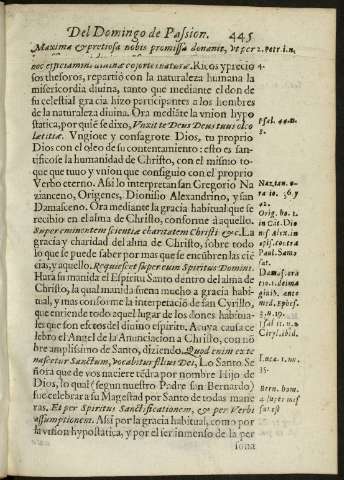 Del Domingo de Passion. 445
Maxima & pretiosa nobis promissa donauit, vt per 2. Petr. 1. n.
hoc efficiamini diuinæ cosortes naturæ. Ricos y precio 4
sos thesoros, repartiò con la naturaleza humana la
misericordia diuina, tanto que mediante el don de
su celestial gracia hizo participantes a los hombres
de la naturaleza diuina. Ora mediãte la vnion hypo
statica, por quiẽ se dixo, Vnxit te Deus Deus tuus oleo
lætitiæ. Vngiote y consagrote Dios, tu proprio
Dios con el oleo de su contentamiento: esto es san-
tificose la humanidad de Christo, con el mismo to-
que que tuuo y vnion que consiguio con el proprio
Verbo eterno. Asi lo interpretan san Gregorio Na
zianceno, Origenes, Dionisio Alexandrino, y san
Damasceno. Ora mediante la gracia habitual que se
recibio en el alma de Christo, conforme à aquello.
Super eminentem scientiæ charitatem Christi &c. La
gracia y charidad del alma de Christo, sobre todo
lo que se puede saber por mas que se encũbren las ciẽ
cias, y aquello. Requiescet super eum Spiritus Domini.
Harà su manida el Espiritu Santo dentro del alma de
Christo, la qual manida suena mucho a gracia habi-
tual, y mas conforme la interpretaciõ de san Cyrillo,
que entiende todo aquel lugar de los dones habitua-
les que son efetos del diuino espiritu. A cuya causa ce
lebro el Angel de la Anunciacion a Christo, con nõ
bre amplissimo de Santo, diziendo. Quod enim ex te
nascetur Sanctum, vocabitur filius Dei, Lo Santo Se
ñora que de vos naciere tẽdra por nombre Hijo de
Dios, lo qual (segun nuestro Padre san Bernardo)
fue celebrar a su Magestad por Santo de todas mane
ras. Et per Spiritus Sanctificationem, & per Verbi
assumptionem. Asi por la gracia habitual, como por
la vnion hypostatica, y por el ser inmenso de la per
sona
Psal. 44. n.
8.
Nazian. o-
ratio. 36. y
42.
Orig. ho. 1.
in Cãt. Dio
nis. Alex. in
epis. cõtra
Paul. Samo
sat.
Damas. ora
tio. 1. de ima
ginib. ante
med. Ephes.
3. n. 19.
Isai 11. n. 2
Ciryl. ibid.
Lucæ. 1. nu.
35.
Bern. hom.
4. super mis
sus est